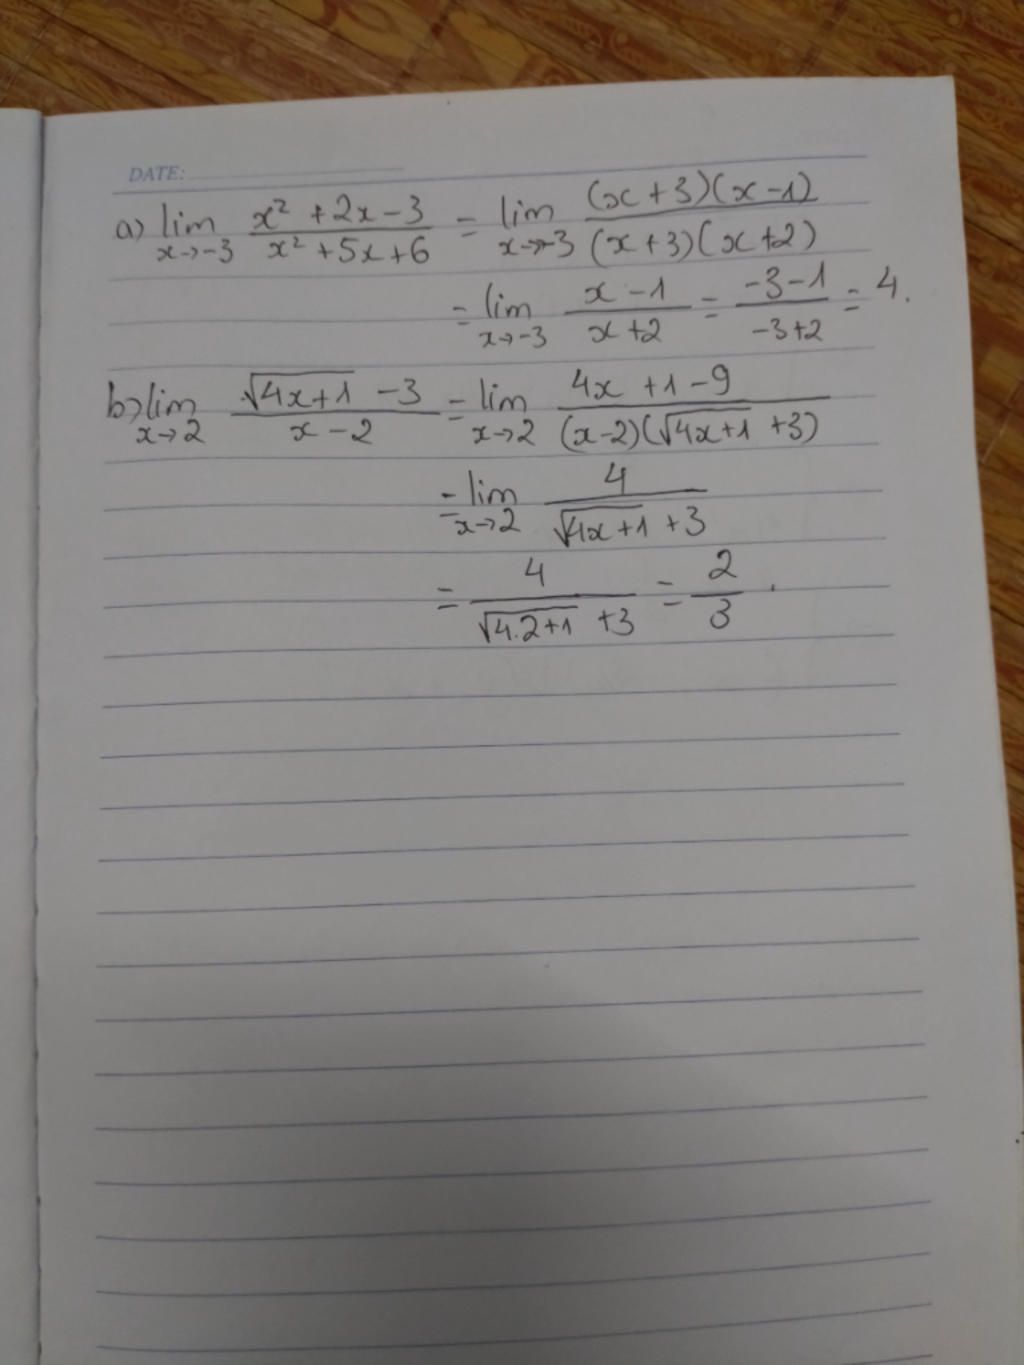 DATE:
a) lim x→-3 (x² + 2x - 3)/(x² + 5x + 6) = lim x→-3 ((x + 3)(x - 1))/((x + 3)(x + 2))
= lim x→-3 (x - 1)/(x + 2) = (-3 - 1)/(-3 + 2) = 4.
b) lim x→2 (√(4x+1) - 3)/(x - 2) = lim x→2 (4x + 1 - 9)/((x - 2)(√(4x+1) + 3))
= lim x→2 4/(√(4x+1) + 3)
= 4/(√(4.2+1) + 3) = 2/3 .